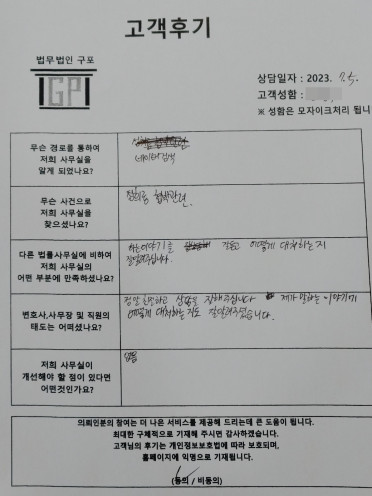 고객후기
법무법인 구포
IGPI
상담일자 : 2023. 7.5.
고객성함 :
※ 성함은 모자이크처리 됩니
무슨 경로를 통하여
저희 사무실을
알게 되었나요?
네이버 검색
무슨 사건으로
저희 사무실을
찾으셨나요?
협박관련
다른 법률사무실에 비하여
저희 사무실의
어떤 부분에 만족하셨나요?
하는이야기를 듣고 어떻게 대처하는지
잘알려주십니다.
변호사,사무장 및 직원의
태도는 어떠셨나요?
정말 친절하고 상담을 진행해주십니다 제가 말하는 이야기에
어떻게 대처하는지도 잘알려주셨습니다.
저희 사무실이
개선해야 할 점이 있다면
어떤것인가요?
없음
의뢰인분의 참여는 더 나은 서비스를 제공해 드리는데 큰 도움이 됩니다.
최대한 구체적으로 기재해 주시면 감사하겠습니다.
고객님의 후기는 개인정보보호법에 따라 보호되며,
홈페이지에 익명으로 기재됩니다.
(동의 / 비동의)